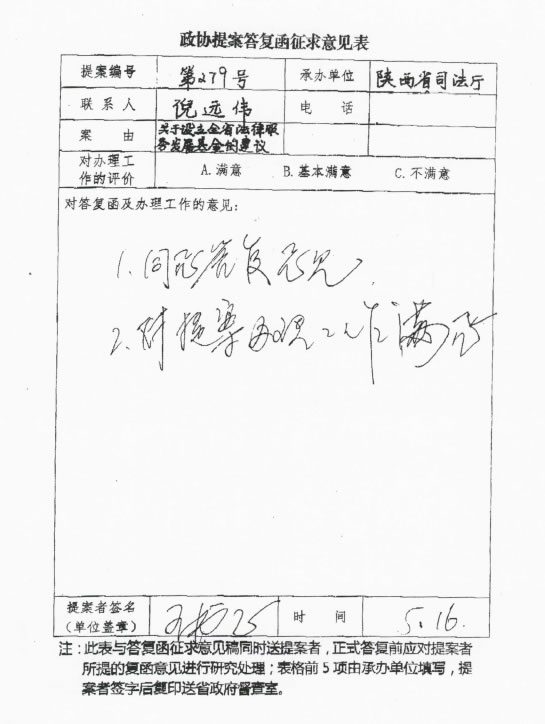 政协提案答复函征求意见表
提案编号 第279号 承办单位 陕西省司法厅
联系人 倪远伟 电话
案由 关于设立全省法律服
务发展基金的建议
对办理工
作的评价 A.满意 B.基本满意 C.不满意
对答复函及办理工作的意见：
1.同意答复意见.
2.对提案办理工作满意
提案者签名
(单位盖章) 时间 5.16.
注：此表与答复函征求意见稿同时送提案者，正式答复前应对提案者
所提的复函意见进行研究处理；表格前5项由承办单位填写，提
案者签字后复印送省政府督查室。